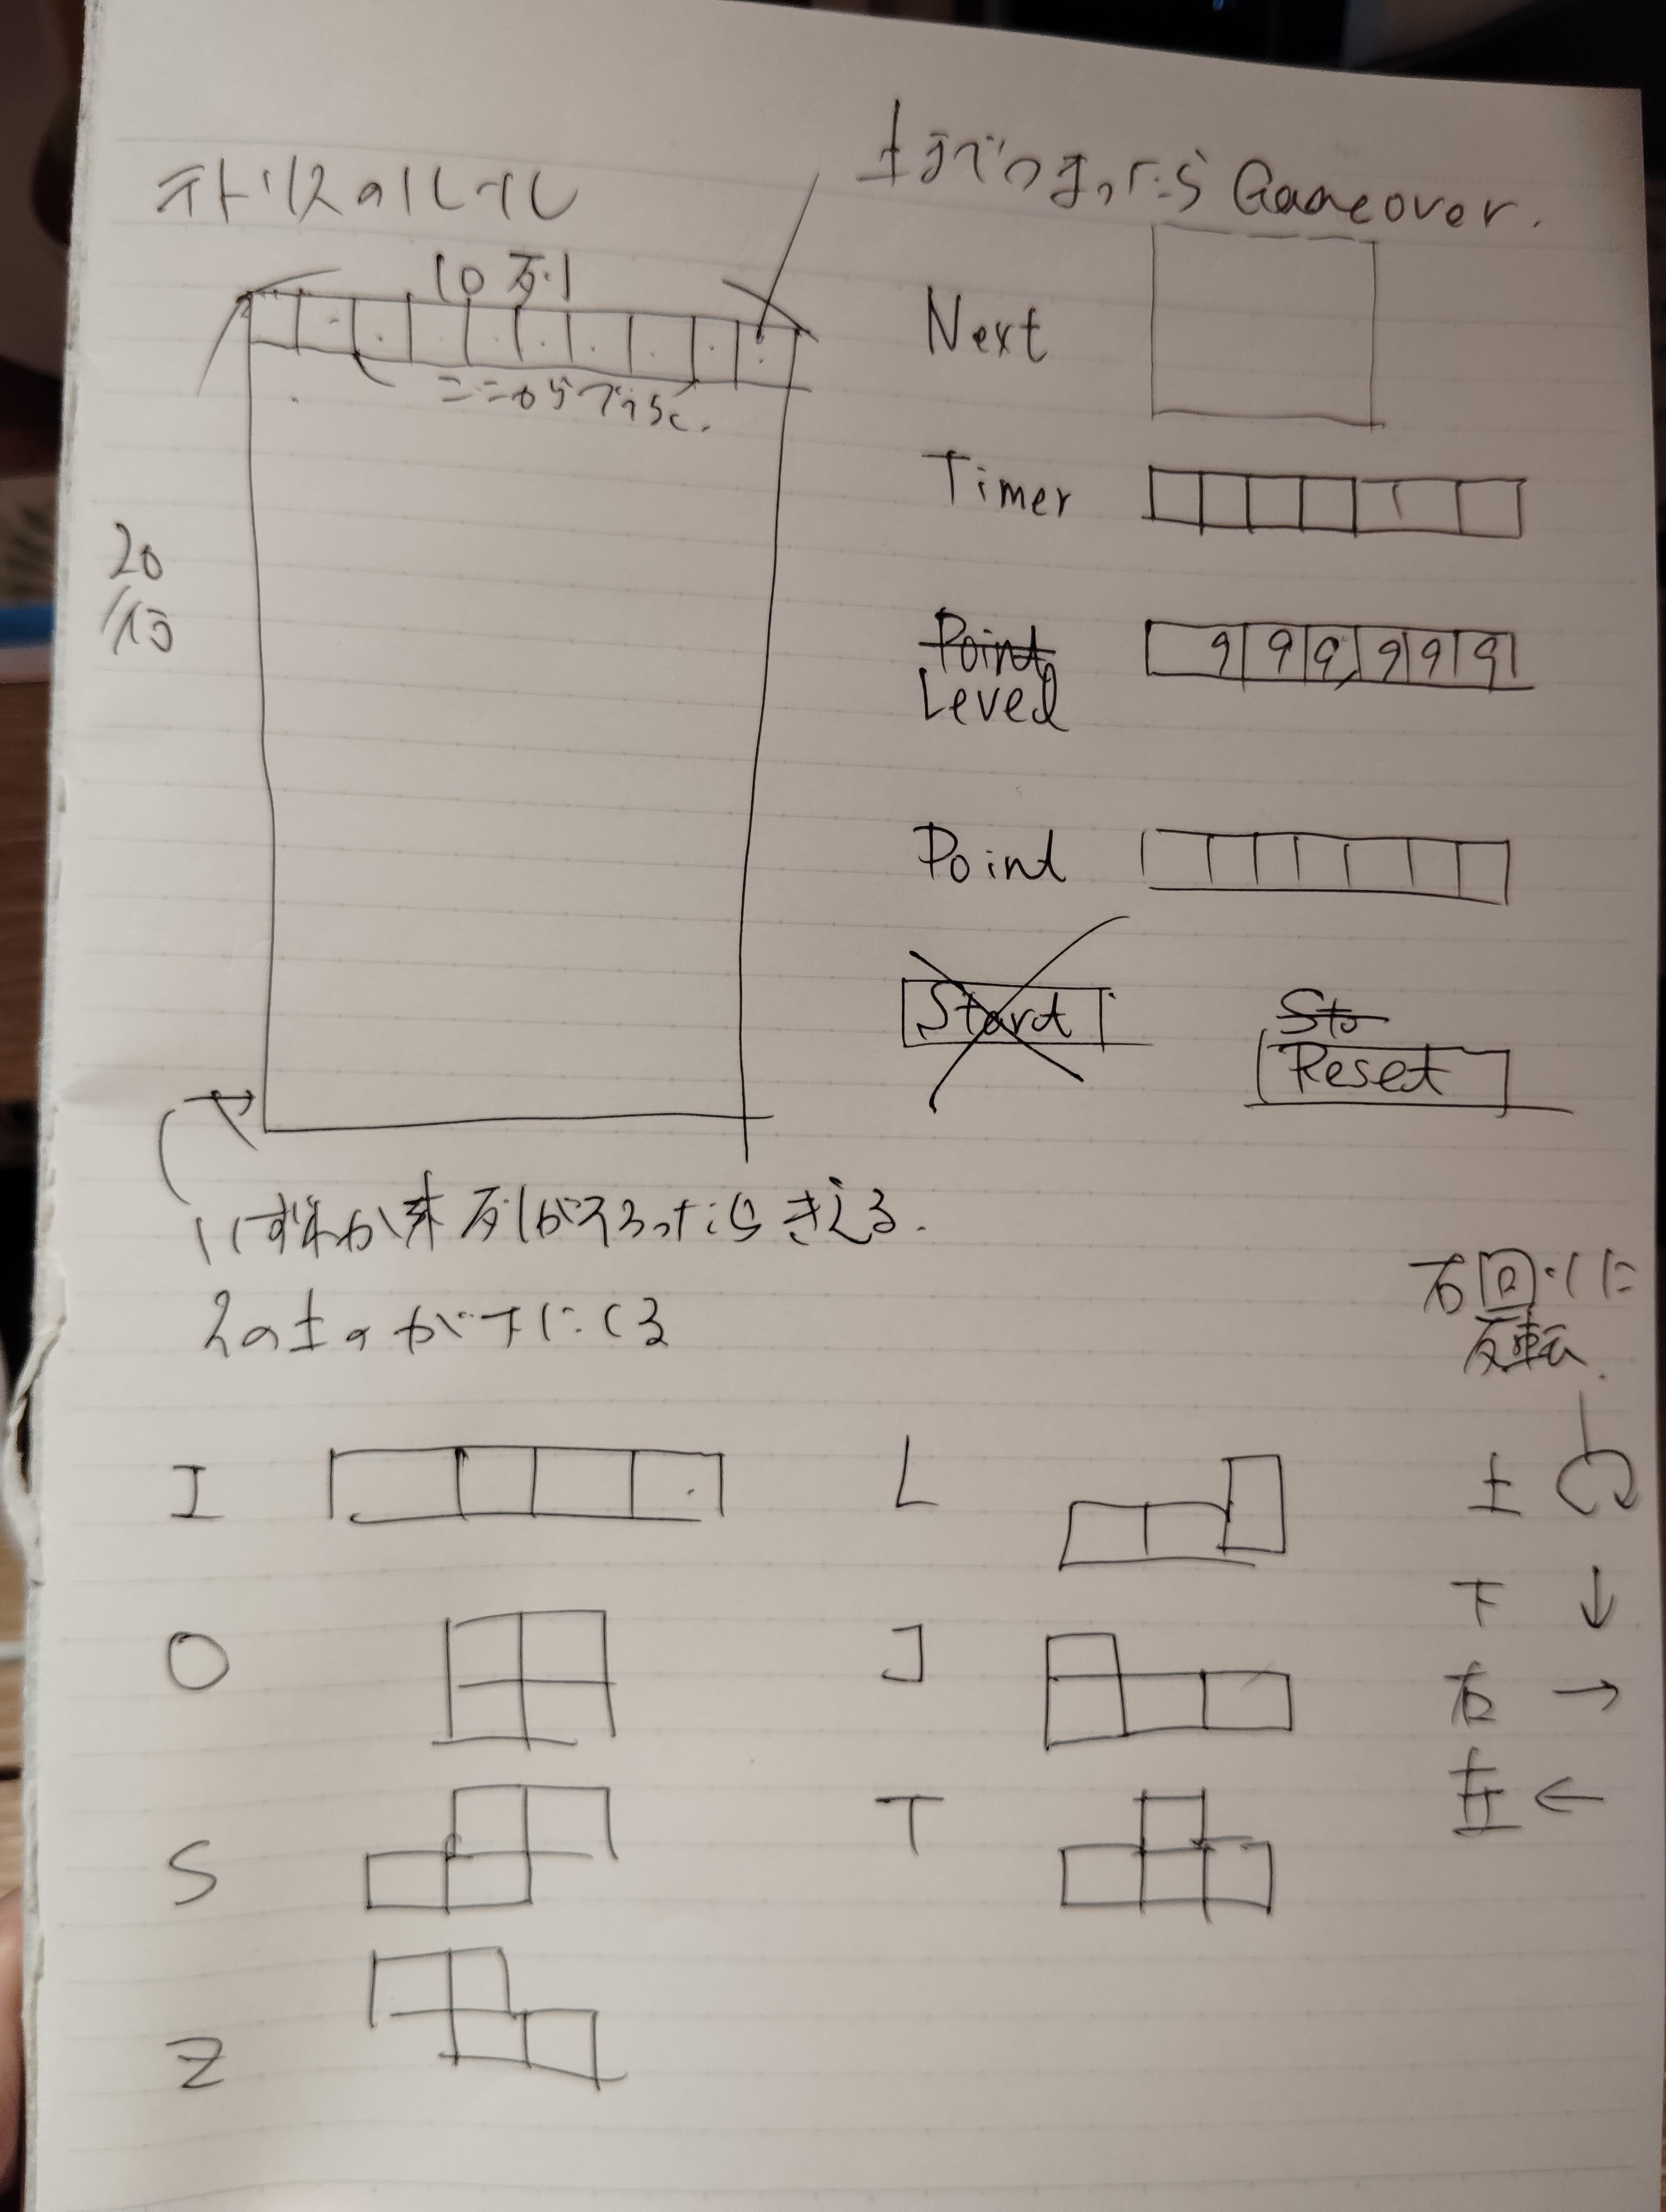 テトリスのルール
上までつまったらGameover.
10列
ここからブロック.
20
行
Next
Timer
Point
Level
9 9 9, 9 9 9
Point
Start
Sto
Reset
いずれか 列がそろったらきえる.
その上のが下にくる
右回りに
反転.
I
L
上
下 ↓
O
J
右 →
左 ←
S
T
Z